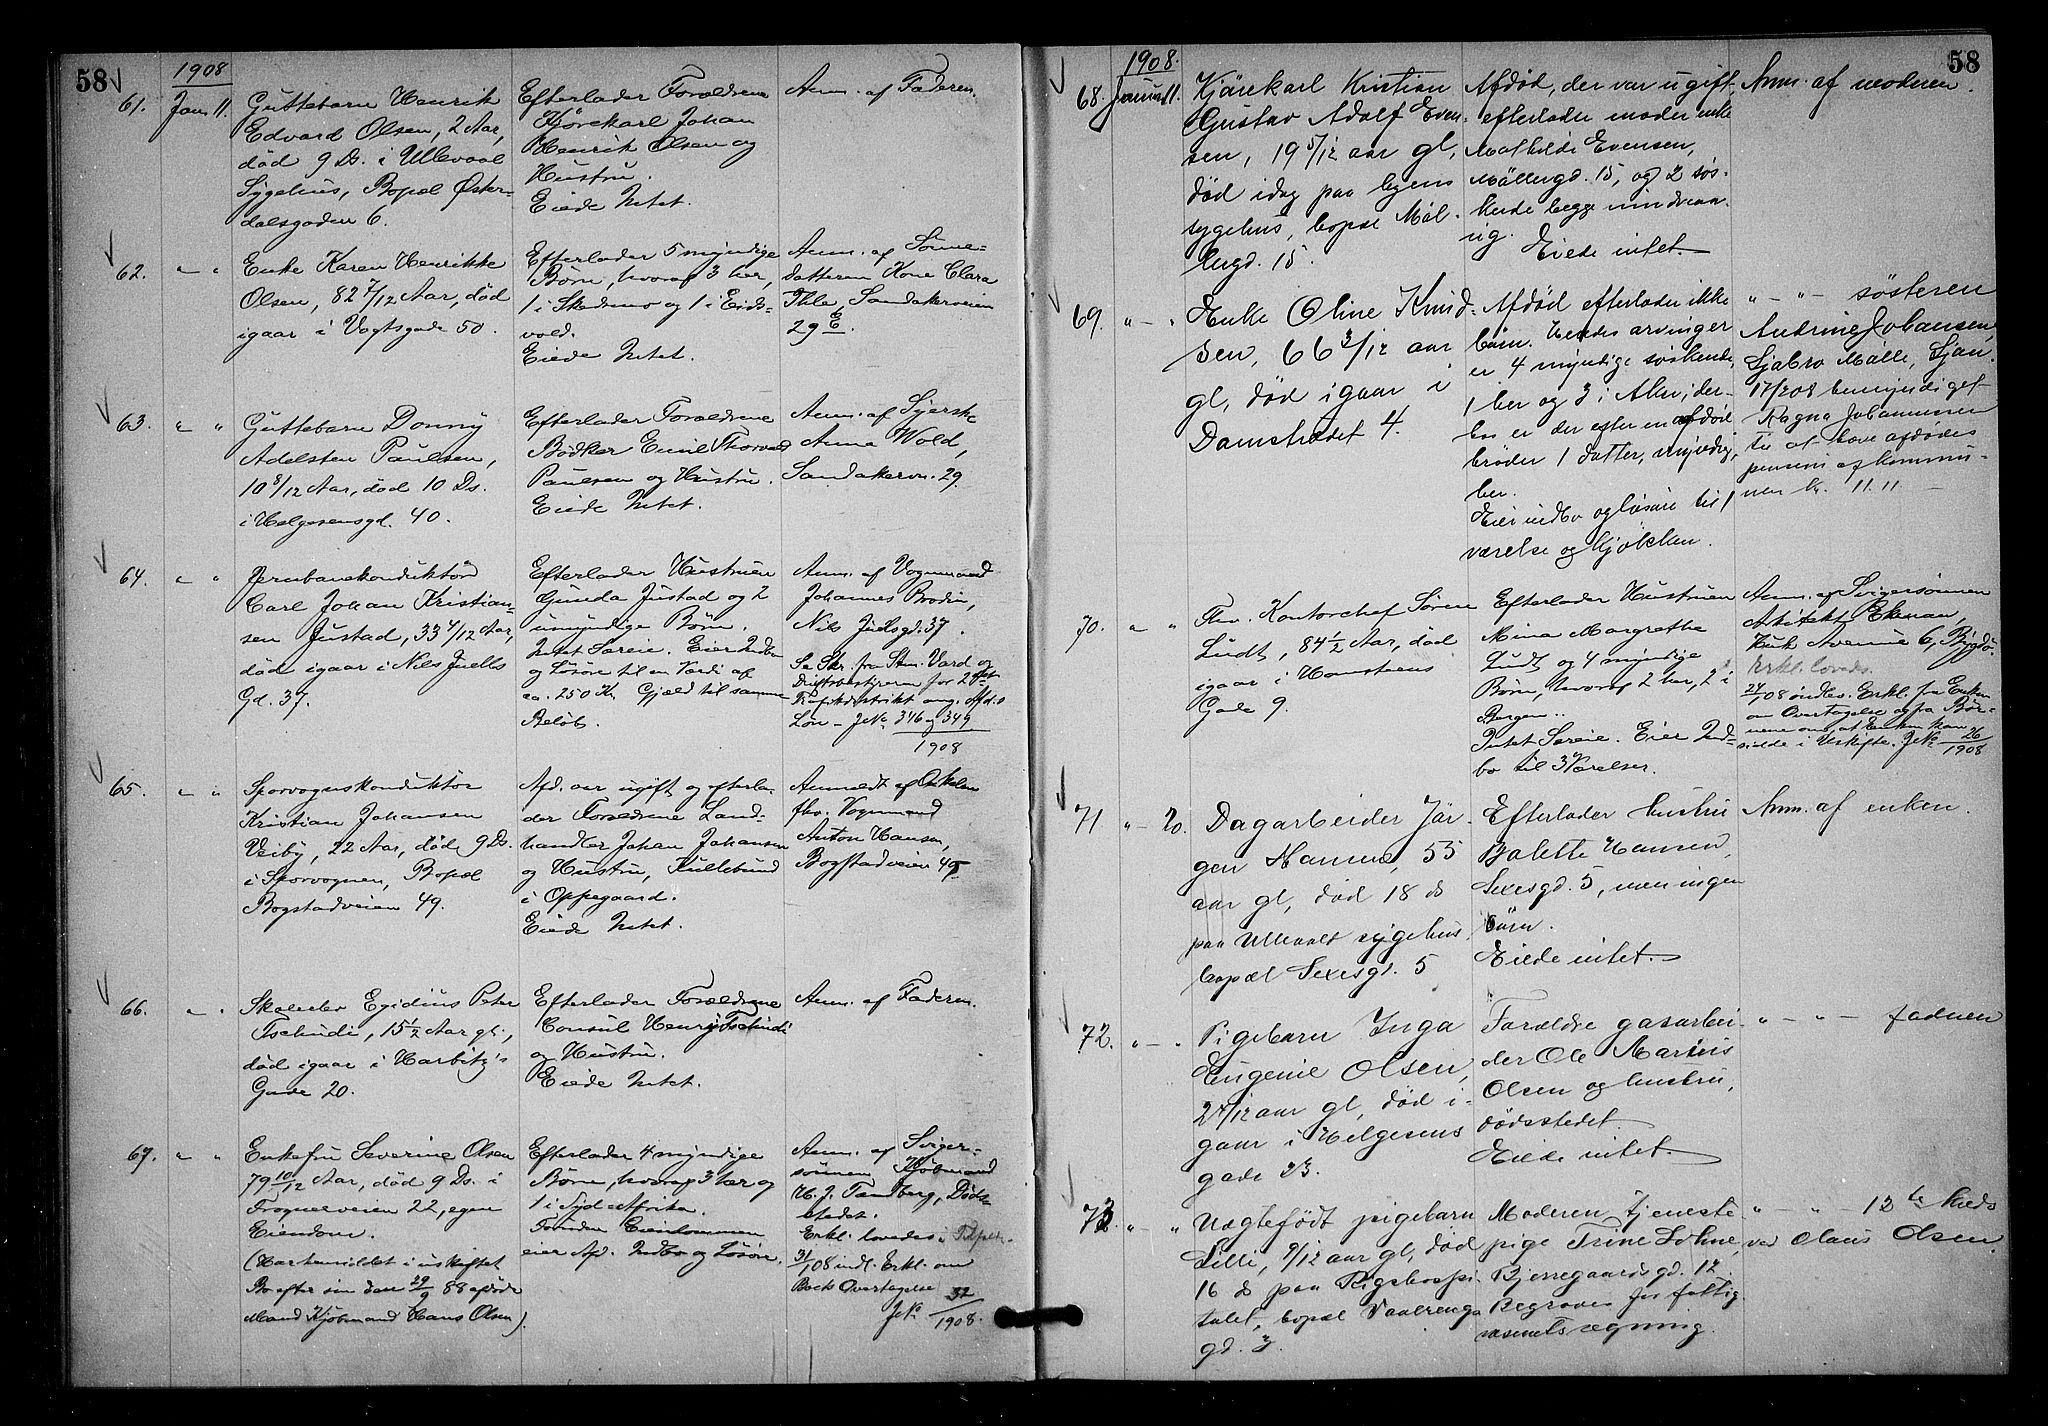 58
1908
61. Jan. 11. Guttebarn Henrik
Edvard Olsen, 2 Aar,
død 9 Ds. i Ullevaal
Sygehus, Bopæl Øster-
dalsgaden 6.
Efterlader Forældrene
Kjørekarl Johan
Henrik Olsen og
Hustru.
Eiede Intet.
Anm. af Faderen.
62. " " Enke Karen Henrikke
Olsen, 82 7/12 Aar, død
igaar i Vogtsgade 50.
Efterlader 5 myndige
Børn, hvoraf 3 her,
1 i Skedsmo og 1 i Eids-
vold.
Eiede Intet.
Anm. af Sønne-
datteren Kone Clara
Ihle, Sandakerveien
29 E.
63. " " Guttebarn Donny
Adelsten Paulsen,
10 8/12 Aar, død 10 Ds.
i Helgesensgd. 40.
Efterlader Forældrene
Bødker Emil Thorvald
Paulsen og Hustru.
Eiede Intet.
Anm. af Syerske
Anna Wold,
Sandakerv. 29.
64. " " Jernbanekonduktør
Carl Johan Kristian-
sen Justad, 33 4/12 Aar,
død igaar i Niels Juells
Gd. 37.
Efterlader Hustruen
Gunda Justad og 2
umyndige Børn.
Intet Særeie. Eier Indbo
og Løsøre til en Værdi af
ca. 250 Kr. Gjæld til samme
Beløb.
Anm. af Vognmand
Johannes Brodin,
Nils Juelsgd. 37.
Se Skr. fra Stm. Vard og
Driftsbestyreren for 2det
Trafikdistrikt ang. Afd.s
Løn - JNo 346 og 349
1908
65. " " Sporvognskonduktør
Kristian Johansen
Veiby, 22 Aar, død 9 Ds.
i Sporvognen, Bopæl
Bogstadveien 49.
Afd. var ugift og efterla-
der Forældrene Land-
handler Johan Johansen
og Hustru, Kullebund
i Oppegaard.
Eiede Intet.
Anmeldt af Onkelen
fhv. Vognmand
Anton Hansen,
Bogstadveien 49.
66. " " Skoleelev Egidius Peter
Tschudi, 15 1/2 Aar gl.,
død igaar i Harbitz's
Gade 20.
Efterlader Forældrene
Consul Henry Tschudi
og Hustru.
Eiede Intet.
Anm. af Faderen.
67. " " Enkefru Severine Olsen
79 10/12 Aar, død 9 Ds. i
Frognerveien 22, egen
Eiendom.
(Har hensiddet i uskiftet
Bo efter sin den 29/9 88 afdøde
Mand Kjøbmand Hans Olsen).
Efterlader 4 myndige
Børn, hvoraf 3 her og
1 i Syd-Afrika.
Foruden Eiendommen
eier Afd. Indbo og Løsøre.
Anm. af Sviger-
sønnen Kjøbmand
H. J. Tandberg, Døds-
stedet.
Erkl. lovedes i
31/1 08 indl. Erkl. om
Boets Overtagelse
JNo 32/1908.
58
1908.
68. Januar 11. Kjørekarl Kristian
Gustav Adolf Even-
sen, 19 5/12 aar gl,
død idag paa byens
sygehus, bopæl Møl-
lergd. 15.
Afdød, der var ugift,
efterlader moder enke
Mathilde Evensen,
Møllergd. 15, og 2 søs-
kende begge mindreaa-
rig.
Eiede intet.
Anm. af moderen.
69. " - " Enke Oline Knud-
sen, 66 3/12 aar
gl, død igaar i
Damstrædet 4.
Afdød efterlader ikke
børn. Hendes arvinger
er 4 myndige søskende,
1 her og 3 i Aker; der-
hos er der efter en afdød
brøder 1 datter, myndig,
her.
Eier indbo og løsøre til 1
værelse og kjøkken.
" - " - søsteren
Andrine Johansen,
Ljabro Mølle, Ljan.
17/2 08 bemyndiget
Ragna Johannesen
til at hæve afdødes
pension af kommu-
nen kr. 11.11 -
70. " " Fhv. Kontorchef Søren
Ludt, 84 1/2 Aar, død
igaar i Homstens
Gade 9.
Efterlader Hustruen
Mina Margrethe
Ludt og 4 myndige
Børn, hvoraf 2 her, 2 i
Bergen.
Intet Særeie. Eier Ind-
bo til 3 Værelser.
Anm. af Svigersønnen
Arkitekt Ekman,
Huk Avenue 6, Bygdø.
Erkl. loveds.
24/1 08 indlev. Erkl. fra Enken
om Overtagelse og fra Bør-
nene om, at Enken kan
sidde i Uskifte. JNo 26/1908
71 " - 20. Dagarbeider Jør-
gen Hansen, 55
aar gl, død 18 ds
paa Ullevaal sygehus,
bopæl Sexesgd. 5
Efterlader hustru
Bolette Hansen,
Sexesgd. 5, men ingen
børn.
Eiede intet.
Anm. af enken.
72. " - " Pigebarn Inga
Eugenie Olsen,
2 4/12 aar gl, død i-
gaar i Helgesens
gade 23.
Forældre gasarbei-
der Ole Marius
Olsen og hustru,
dødsstedet.
Eiede intet.
" - " - faderen
73. " - " Uægtefødt pigebarn
Lilli, 9/12 aar gl, død
16 ds paa Rigshospi-
talet, bopæl Vaalrenga
gd. 3.
Moderen tjeneste-
pige Trine Lohne,
Bjerregaards gd. 12.
Begraves for fattig-
væsenets regning.
" - " - 12te kreds
ved Olaus Olsen.